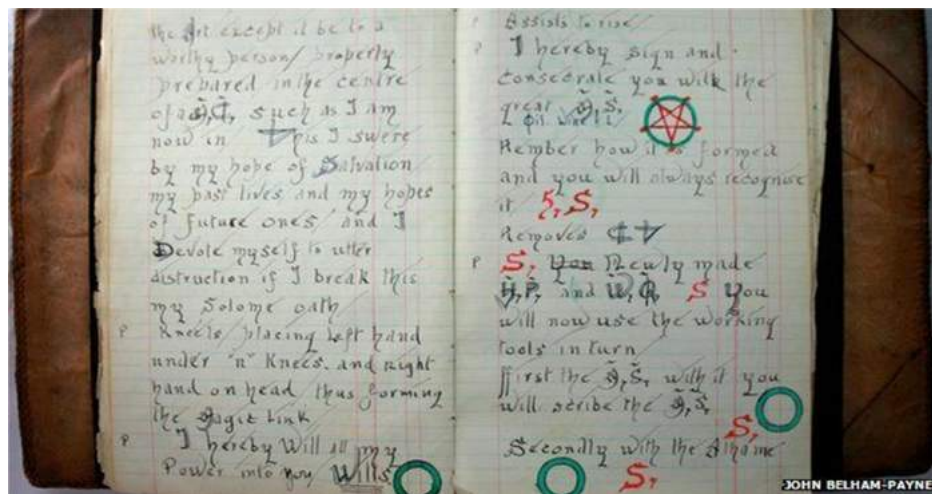 the Art except it be to a
worthy person/ properly
prepared in the centre
of a such as I am
now in this I swere
by my hope of Salvation
my past lives and my hopes
of future ones and I
Devote myself to utter
distruction if I break this
my Solome oath
P Kneels placing left hand
under "n" Knees. and right
hand on head thus forming
the Magic link
P I hereby Will all my
Power into you Wills
P Assists to rise
P I hereby sign and
consecrate you with the
great S,
Rember how it is formed
and you will always recognise
it 5, S,
Removes
P S, You Newly made
H,P, and W,Q, S You
will now use the working
tools in turn
ffirst the S, with it you
will scribe the S,
S,
Secondly with the Athame
S,
JOHN BELHAM-PAYNE